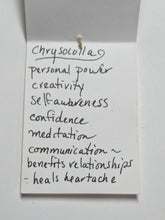 Chrysocolla
personal power
creativity
self awareness
confidence
meditation
communication ~
benefits relationships
- heals heartache